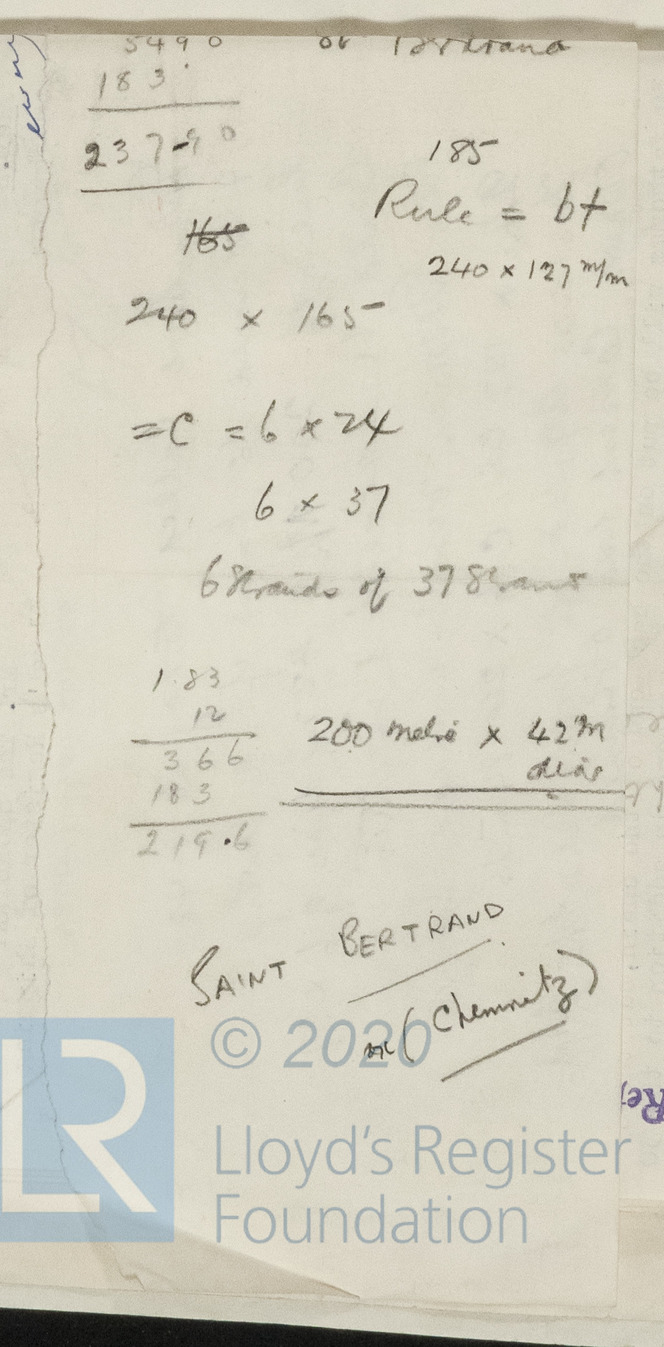 5490
183
23790
185
Rule = bt
240 x 127 m/m
165
240 x 165
= C = 6 x 24
6 x 37
6 Strands of 37
1.83
12
366
183
219.6
200 metre x 42 m
dia
SAINT BERTRAND
(Chemnitz)
© 2020
LR
Lloyd's Register
Foundation